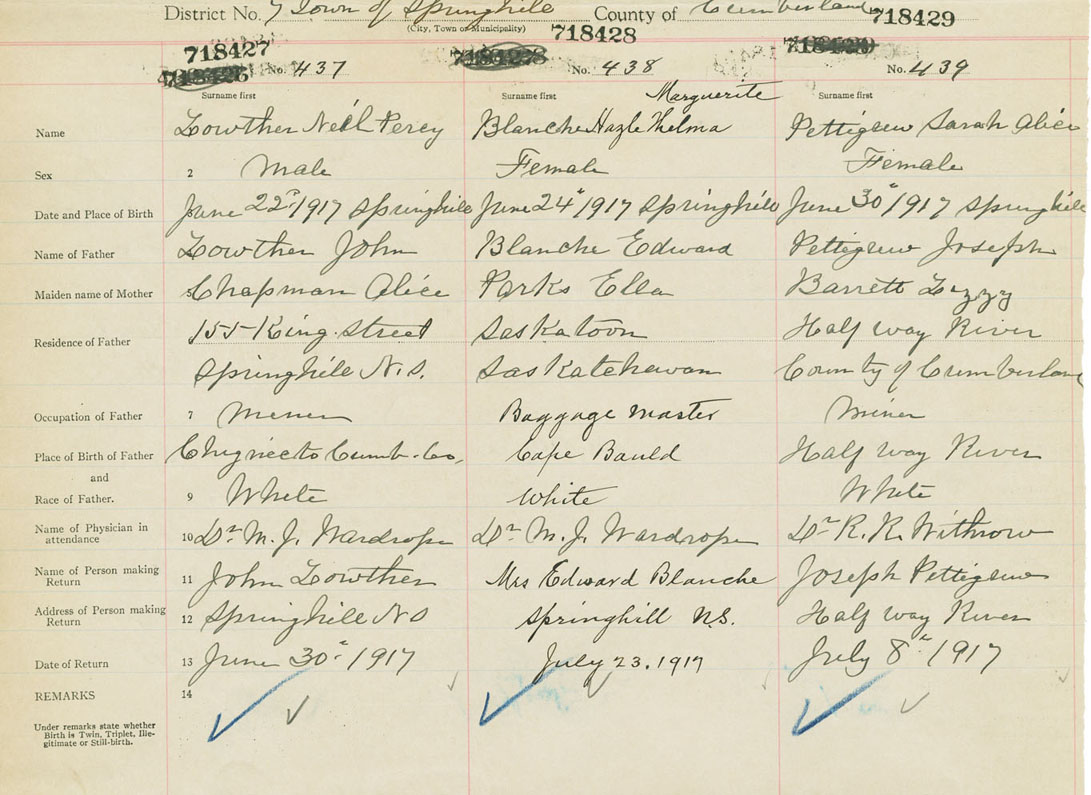 District No. 7 Town of Springhill County of Cumberland
(City, Town or Municipality)
718427 718428 718429
No. 437 No. 438 No. 439
Surname first Surname first Surname first
Marguerite
Name Lowther Neil Percy Blanche Hazle Thelma Pettigrew Sarah Alice
Sex 2 Male Female Female
Date and Place of Birth June 22"/1917 Springhill June 24"/1917 Springhill June 30"/1917 Springhill
Name of Father Lowther John Blanche Edward Pettigrew Joseph
Maiden name of Mother Chapman Alice Parks Ella Barrett Lizzy
Residence of Father 155 King Street Saskatoon Half way River
Springhill N.S. Saskatchewan County of Cumberland
Occupation of Father 7 Miner Baggage master Miner
Place of Birth of Father Chignecto Cumb. Co, Cape Bauld Half way River
and
Race of Father. 9 White White White
Name of Physician in attendance 10 Dr M. J. Wardrope Dr M. J. Wardrope Dr R. R. Withrow
Name of Person making Return 11 John Lowther Mrs Edward Blanche Joseph Pettigrew
Address of Person making Return 12 Springhill N S Springhill N.S. Half way River
Date of Return 13 June 30"/1917 July 23, 1917 July 8"/1917
REMARKS 14
Under remarks state whether
Birth is Twin, Triplet, Ille-
gitimate or Still-birth.